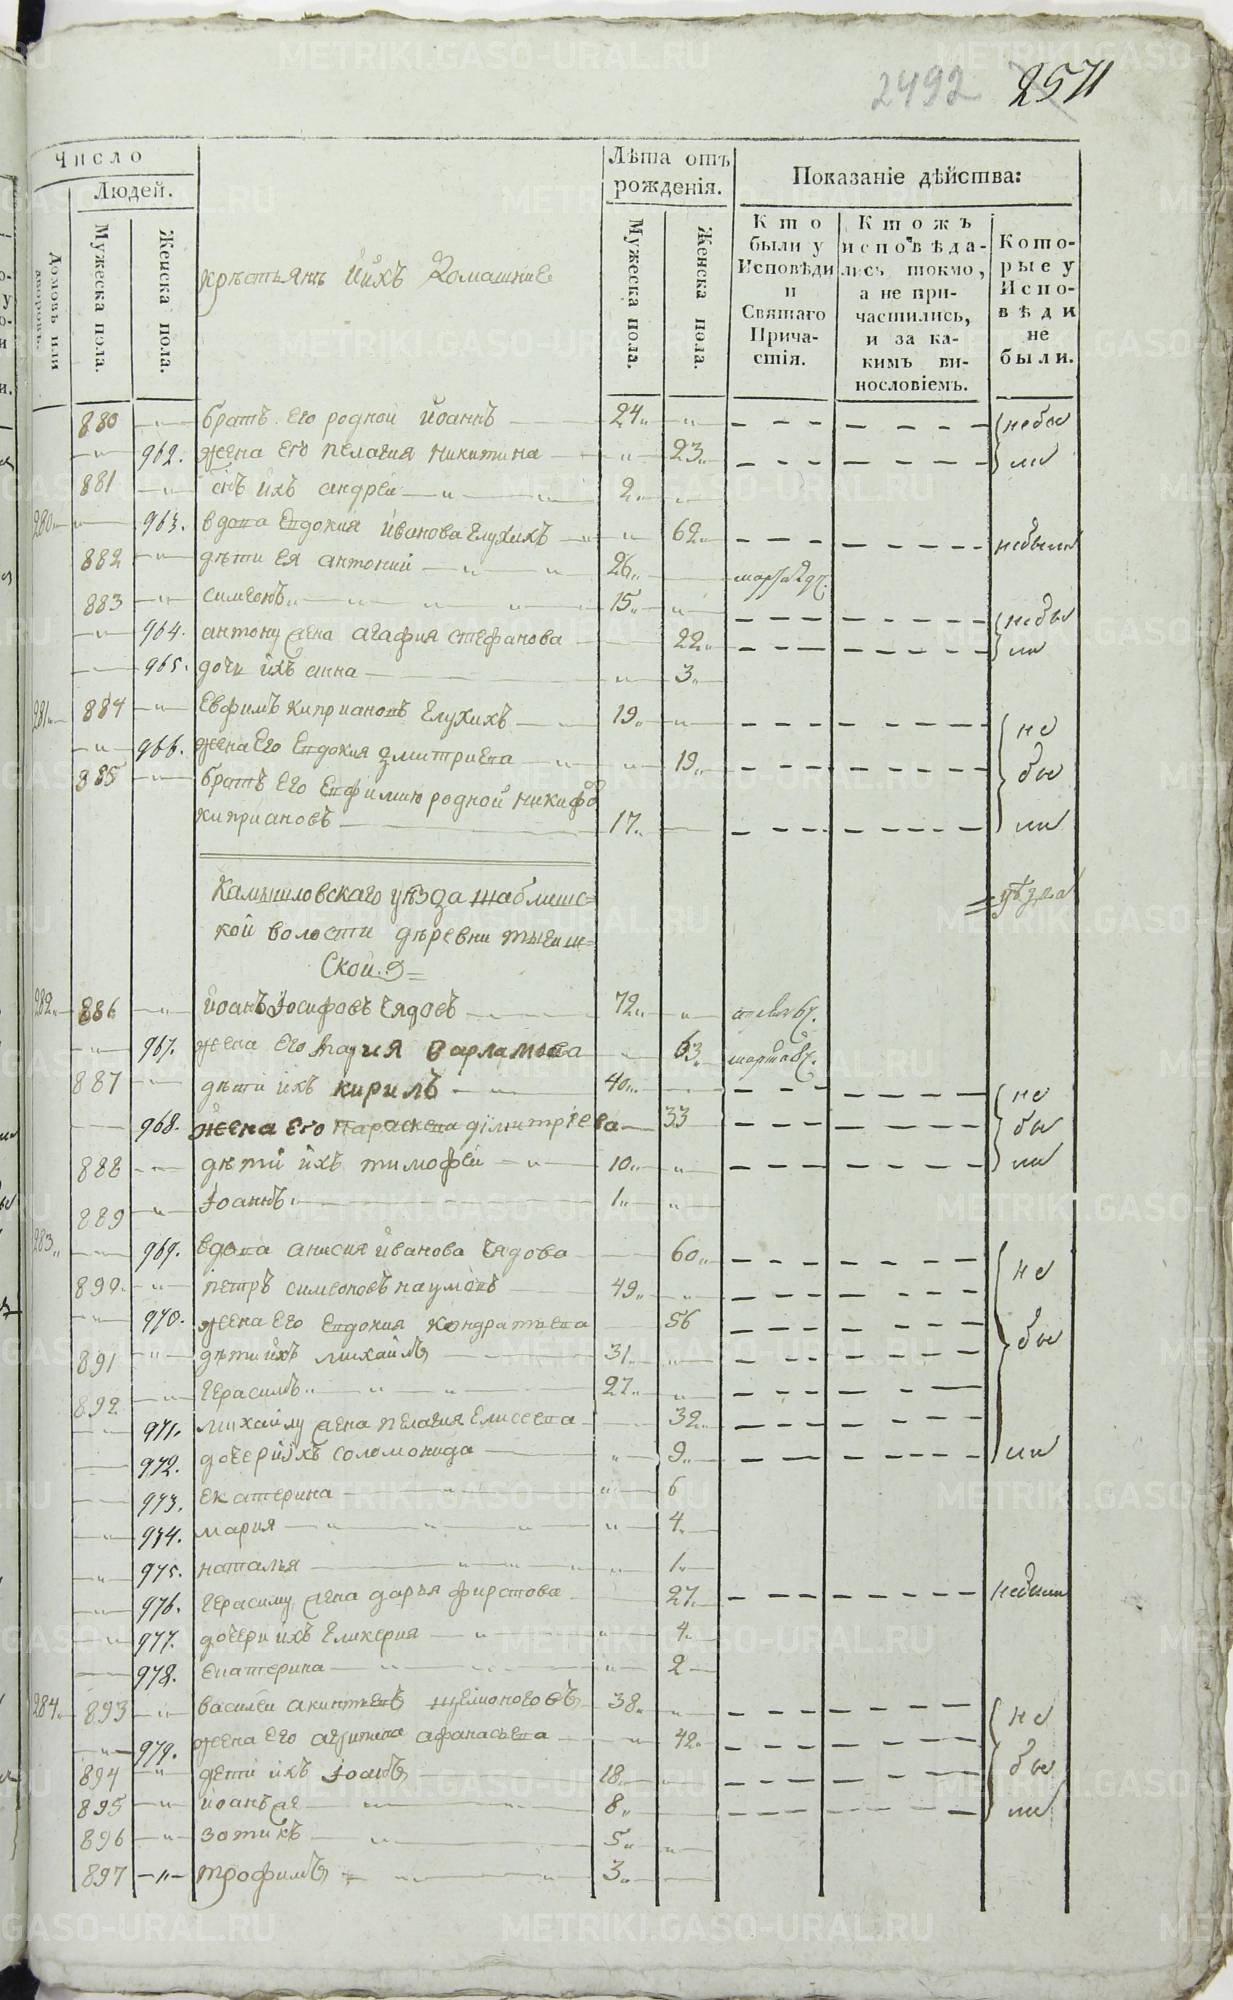 2492 2571
Число
Людей.
Домовъ или дворовъ.
Мужеска пола.
Женска пола.
крѣстьянъ Ийхъ домашние
Лѣта отъ рожденія.
Мужеска пола.
Женска пола.
Показаніе дѣйства:
Кто были у Исповѣди и Святаго Причастія.
Ктожъ исповѣдались токмо, а не причастились, и за какимъ винословіемъ.
Которые у Исповѣди не были.
880 братъ его родной Иоаннъ 24 небы
962. жена его пелагия никитина 23 ли
881 сн҃ъ ихъ андрей 2
280 963. вдова Евдокия Иванова Глухихъ 62 небыли
882 дѣти ея антоний 26 марта 2
883 симеонъ 15 небы
964. антону жена агафия стефанова 22 ли
965. дочь ихъ анна 3
281 884 Евфимъ киприановъ Глухихъ 19 не
966. жена Его Евдокия дмитриева 19 бы
885 братъ его Евфимию родной никифо
киприановъ 17 ли
Камышловскаго уѣзда шаблишс= уѣзда
кой волости дѣревни тыгиш=
Ской
282 886 Иоанъ Иосифовъ Чядовъ 72
967. жена его мария варламова 63 марта
887 дѣти ихъ кирилъ 40 не
968. жена его Параскева димитриева 33 бы
888 дѣти ихъ тимофей 10 ли
889 Иоаннъ 1
283 969. вдова анисия Иванова Чядова 60 не
890 петръ симеоновъ наумовъ 49
970. жена его Евдокия кондратьева 56 бы
891 дѣти ихъ михаилъ 31
892 герасимъ 27
971. михаилу жена пелагия Елисеева 32
972. дочери ихъ соломонида 9 ли
973. екатерина 6
974. мария 4
975. наталья 1
976. герасиму жена дарья фирстова 27 небыли
977. дочери ихъ гликерия 4
978. екатерина 2
284 893 василей акинтьевъ щелконоговъ 38 не
979. жена его агрипина афанасьева 42
894 дети ихъ Иоанъ 18 бы
895 Иоанъ же 8 ли
896 зотикъ 5
897 трофимъ 3
METRIKI.GASO-URAL.RU